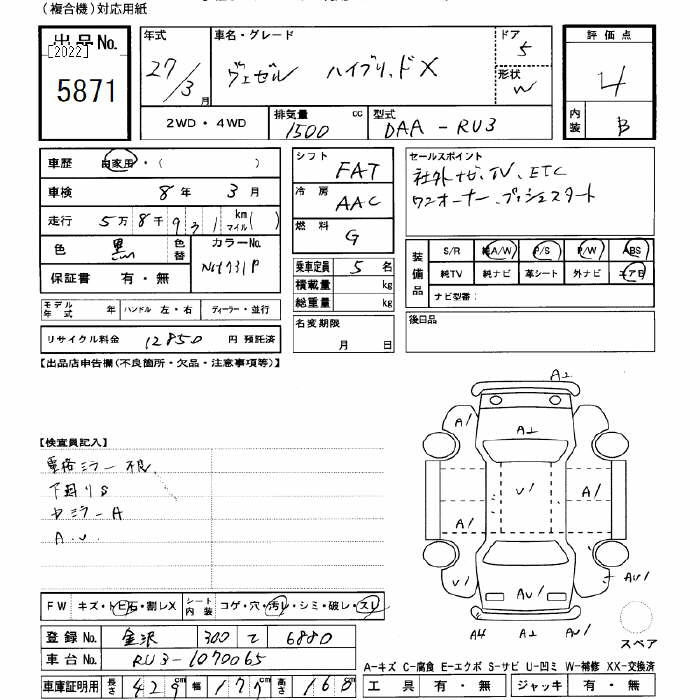 (複合機)対応用紙
出品No. [2022] 5871
年式 27/3月
車名・グレード ヴェゼル ハイブリッドX
ドア 5
形状 W
2WD・4WD
排気量 1500 cc
型式 DAA-RU3
評価点 4
内装 B
車歴 自家用・( )
車検 8年 3月
走行 5万8千931 km マイル( )
色 黒 色替
カラーNo. NH731P
保証書 有・無
モデル年式 年 ハンドル 左・右 ディーラー・並行
リサイクル料金 12850 円 預託済
シフト FAT
冷房 AAC
燃料 G
乗車定員 5 名
積載量 kg
総重量 kg
名変期限 月 日
セールスポイント
社外ナビ、TV、ETC
ワンオーナー、プッシュスタート
装備品
S/R 純A/W P/S P/W ABS
純TV 純ナビ 革シート 外ナビ エアB
ナビ型番:
後日品
【出品店申告欄(不良箇所・欠品・注意事項等)】
【検査員記入】
下廻りS
ミラーA
A.U.
FW キズ・トビ石・割レX
シート内装 コゲ・穴・汚レ・シミ・破レ・スレ
登録No. 金沢 300 て 6880
車台No. RU3-1070065
車庫証明用 長さ 429cm 幅 177cm 高さ 160
A2
A1 A2
U1 A1
A1
U1 AU1 AU1
A4 A2 AU1
スペア
A-キズ C-腐食 E-エクボ S-サビ U-凹ミ W-補修 XX-交換済
工具 有・無 ジャッキ 有・無